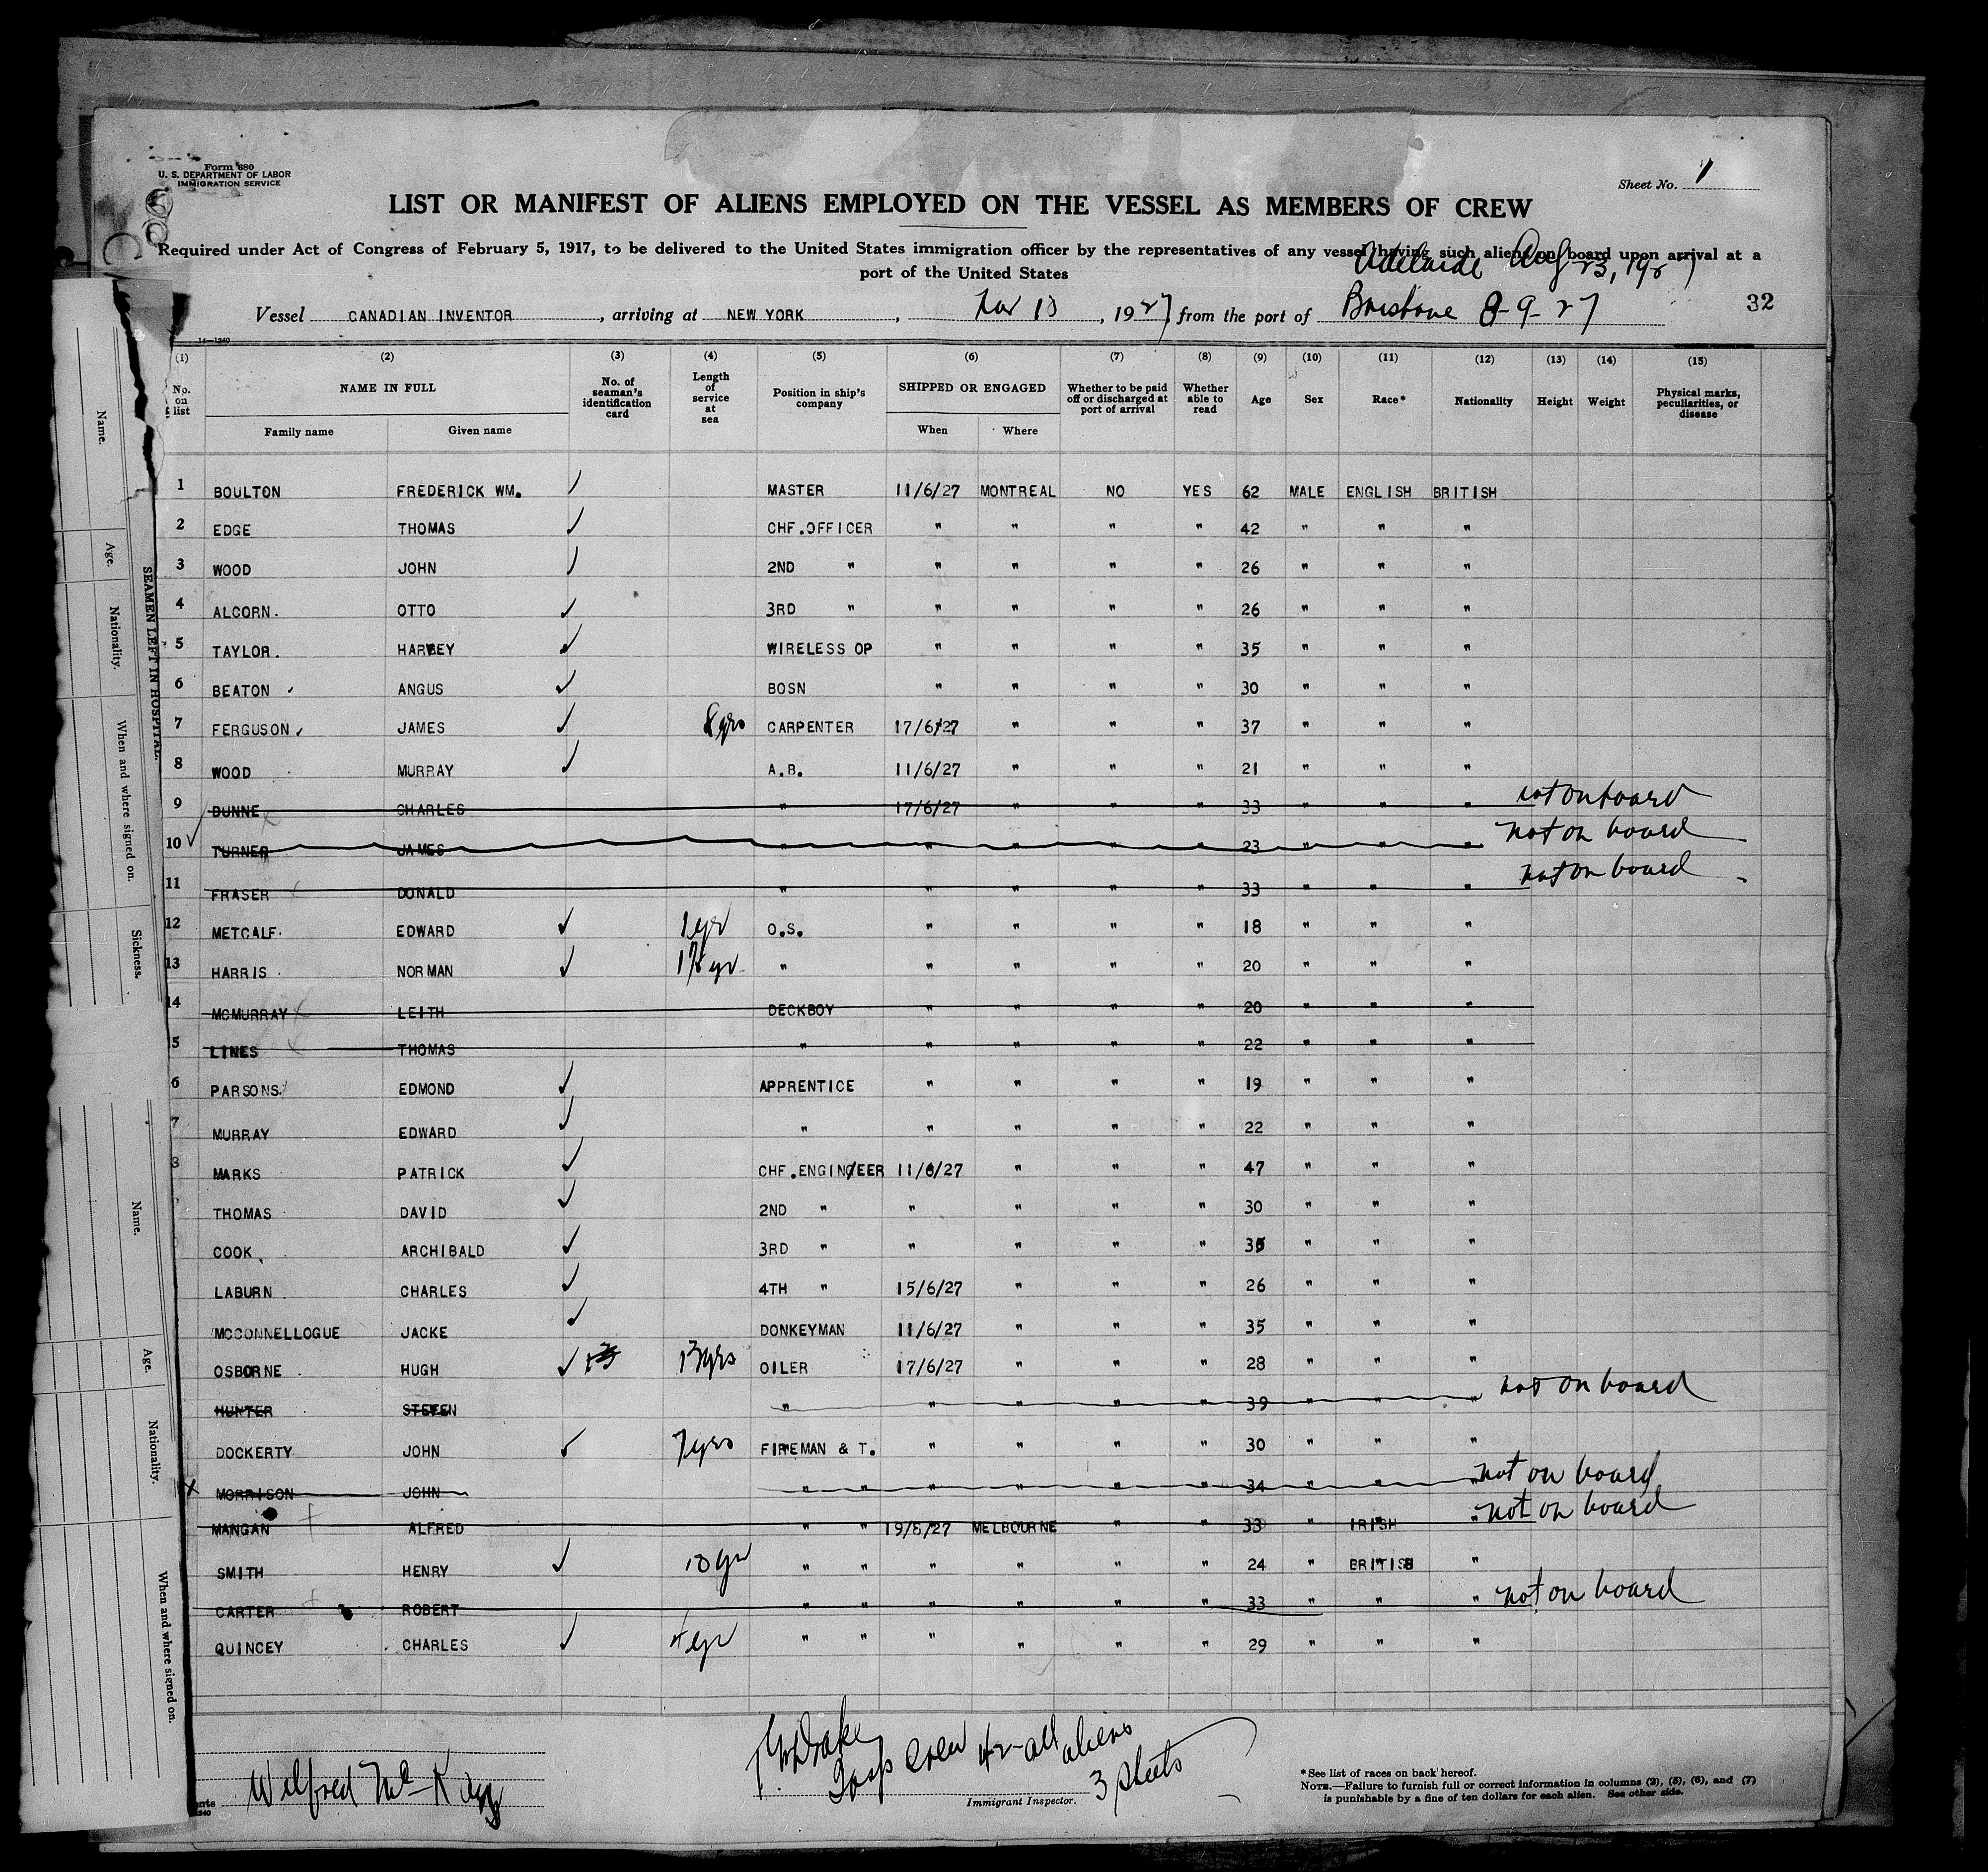 Form 680
U. S. DEPARTMENT OF LABOR
IMMIGRATION SERVICE
Sheet No. 1
LIST OR MANIFEST OF ALIENS EMPLOYED ON THE VESSEL AS MEMBERS OF CREW
Required under Act of Congress of February 5, 1917, to be delivered to the United States immigration officer by the representatives of any vessel having such aliens on board upon arrival at a
port of the United States
Adelaide Aug 23, 1927
Vessel CANADIAN INVENTOR, arriving at NEW YORK, 1927, from the port of Brisbane 8-9-27
32
14—1240
(1) (2) (3) (4) (5) (6) (7) (8) (9) (10) (11) (12) (13) (14) (15)
No. on list NAME IN FULL Family name Given name No. of seaman's identification card Length of service at sea Position in ship's company SHIPPED OR ENGAGED When Where Whether to be paid off or discharged at port of arrival Whether able to read Age Sex Race* Nationality Height Weight Physical marks, peculiarities, or disease
1 BOULTON FREDERICK WM. MASTER 11/6/27 MONTREAL NO YES 62 MALE ENGLISH BRITISH
2 EDGE THOMAS CHF.OFFICER " " " " 42 " " "
3 WOOD JOHN 2ND " " " " " 26 " " "
4 ALCORN. OTTO 3RD " " " " " 26 " " "
5 TAYLOR. HARVEY WIRELESS OP " " " " 35 " " "
6 BEATON ANGUS BOSN " " " " 30 " " "
7 FERGUSON JAMES 8 yrs CARPENTER 17/6/27 " " " 37 " " "
8 WOOD MURRAY A.B. 11/6/27 " " " 21 " " "
9 DUNNE CHARLES " 17/6/27 " " " 33 " " " not on board
10 TURNER JAMES " " " " " 23 " " " not on board
11 FRASER DONALD " " " " " 33 " " " not on board
12 METCALF. EDWARD 1 yr O.S. " " " " 18 " " "
13 HARRIS NORMAN yr " " " " " 20 " " "
14 MCMURRAY LEITH DECKBOY " " " " 20 " " "
5 LINES THOMAS " " " " " 22 " " "
6 PARSONS. EDMOND APPRENTICE " " " " 19 " " "
7 MURRAY EDWARD " " " " " 22 " " "
8 MARKS PATRICK CHF.ENGINEER 11/6/27 " " " 47 " " "
THOMAS DAVID 2ND " " " " " 30 " " "
COOK ARCHIBALD 3RD " " " " " 35 " " "
LABURN CHARLES 4TH " 15/6/27 " " " 26 " " "
MCCONNELLOGUE JACKE DONKEYMAN 11/6/27 " " " 35 " " "
OSBORNE HUGH 13 yrs OILER 17/6/27 " " " 28 " " "
HUNTER STEVEN " " " " " 39 " " " not on board
DOCKERTY JOHN 7 yrs FIREMAN & T. " " " " 30 " " "
MORRISON JOHN " " " " " " 34 " " " not on board
MANGAN ALFRED " " 19/8/27 MELBOURNE " " 33 " IRISH " not on board
SMITH HENRY 10 yr " " " " " " 24 " BRITISH "
CARTER ROBERT " " " " " " 33 " " " not on board
QUINCEY CHARLES 4 yr " " " " " " 29 " " "
Drake
crew 42 all aliens
3 sheets
Immigrant Inspector.
Wilfred Mc Kay
*See list of races on back hereof.
NOTE.—Failure to furnish full or correct information in columns (2), (5), (6), and (7)
is punishable by a fine of ten dollars for each alien. See other side.
SEAMEN LEFT IN HOSPITAL.
Name.
Age.
Nationality.
When and where signed on.
Sickness.
Name.
Age.
Nationality.
When and where signed on.